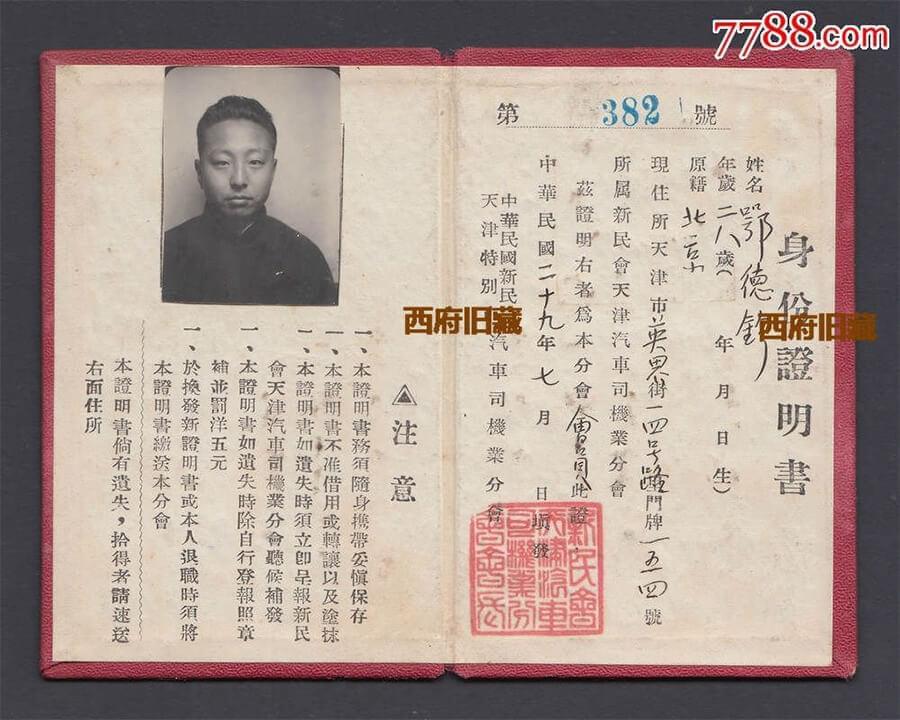 7788.com
第 382 號
身份證明書
姓名 鄂德
年歲 二八歲（ 年 月 日生）
原籍 北京
現住所天津市英界街一四号路門牌一五四號
所屬新民會天津汽車司機業分會
茲證明右者爲本分會會員此證
中華民國二十九年七月 日塡發
中華民國新民
天津特別 汽車司機業分會
西府旧藏
西府旧藏
注意
一、本證明書務須隨身携帶妥愼保存
一、本證明書不准借用或轉讓以及塗抹
一、本證明書如遺失時須立卽呈報新民
會天津汽車司機業分會聽候補發
一、本證明書如遺失時除自行登報照章
補並罰洋五元
一、於換發新證明書或本人退職時須將
本證明書繳送本分會
本證明書倘有遺失，拾得者請速送
右面住所